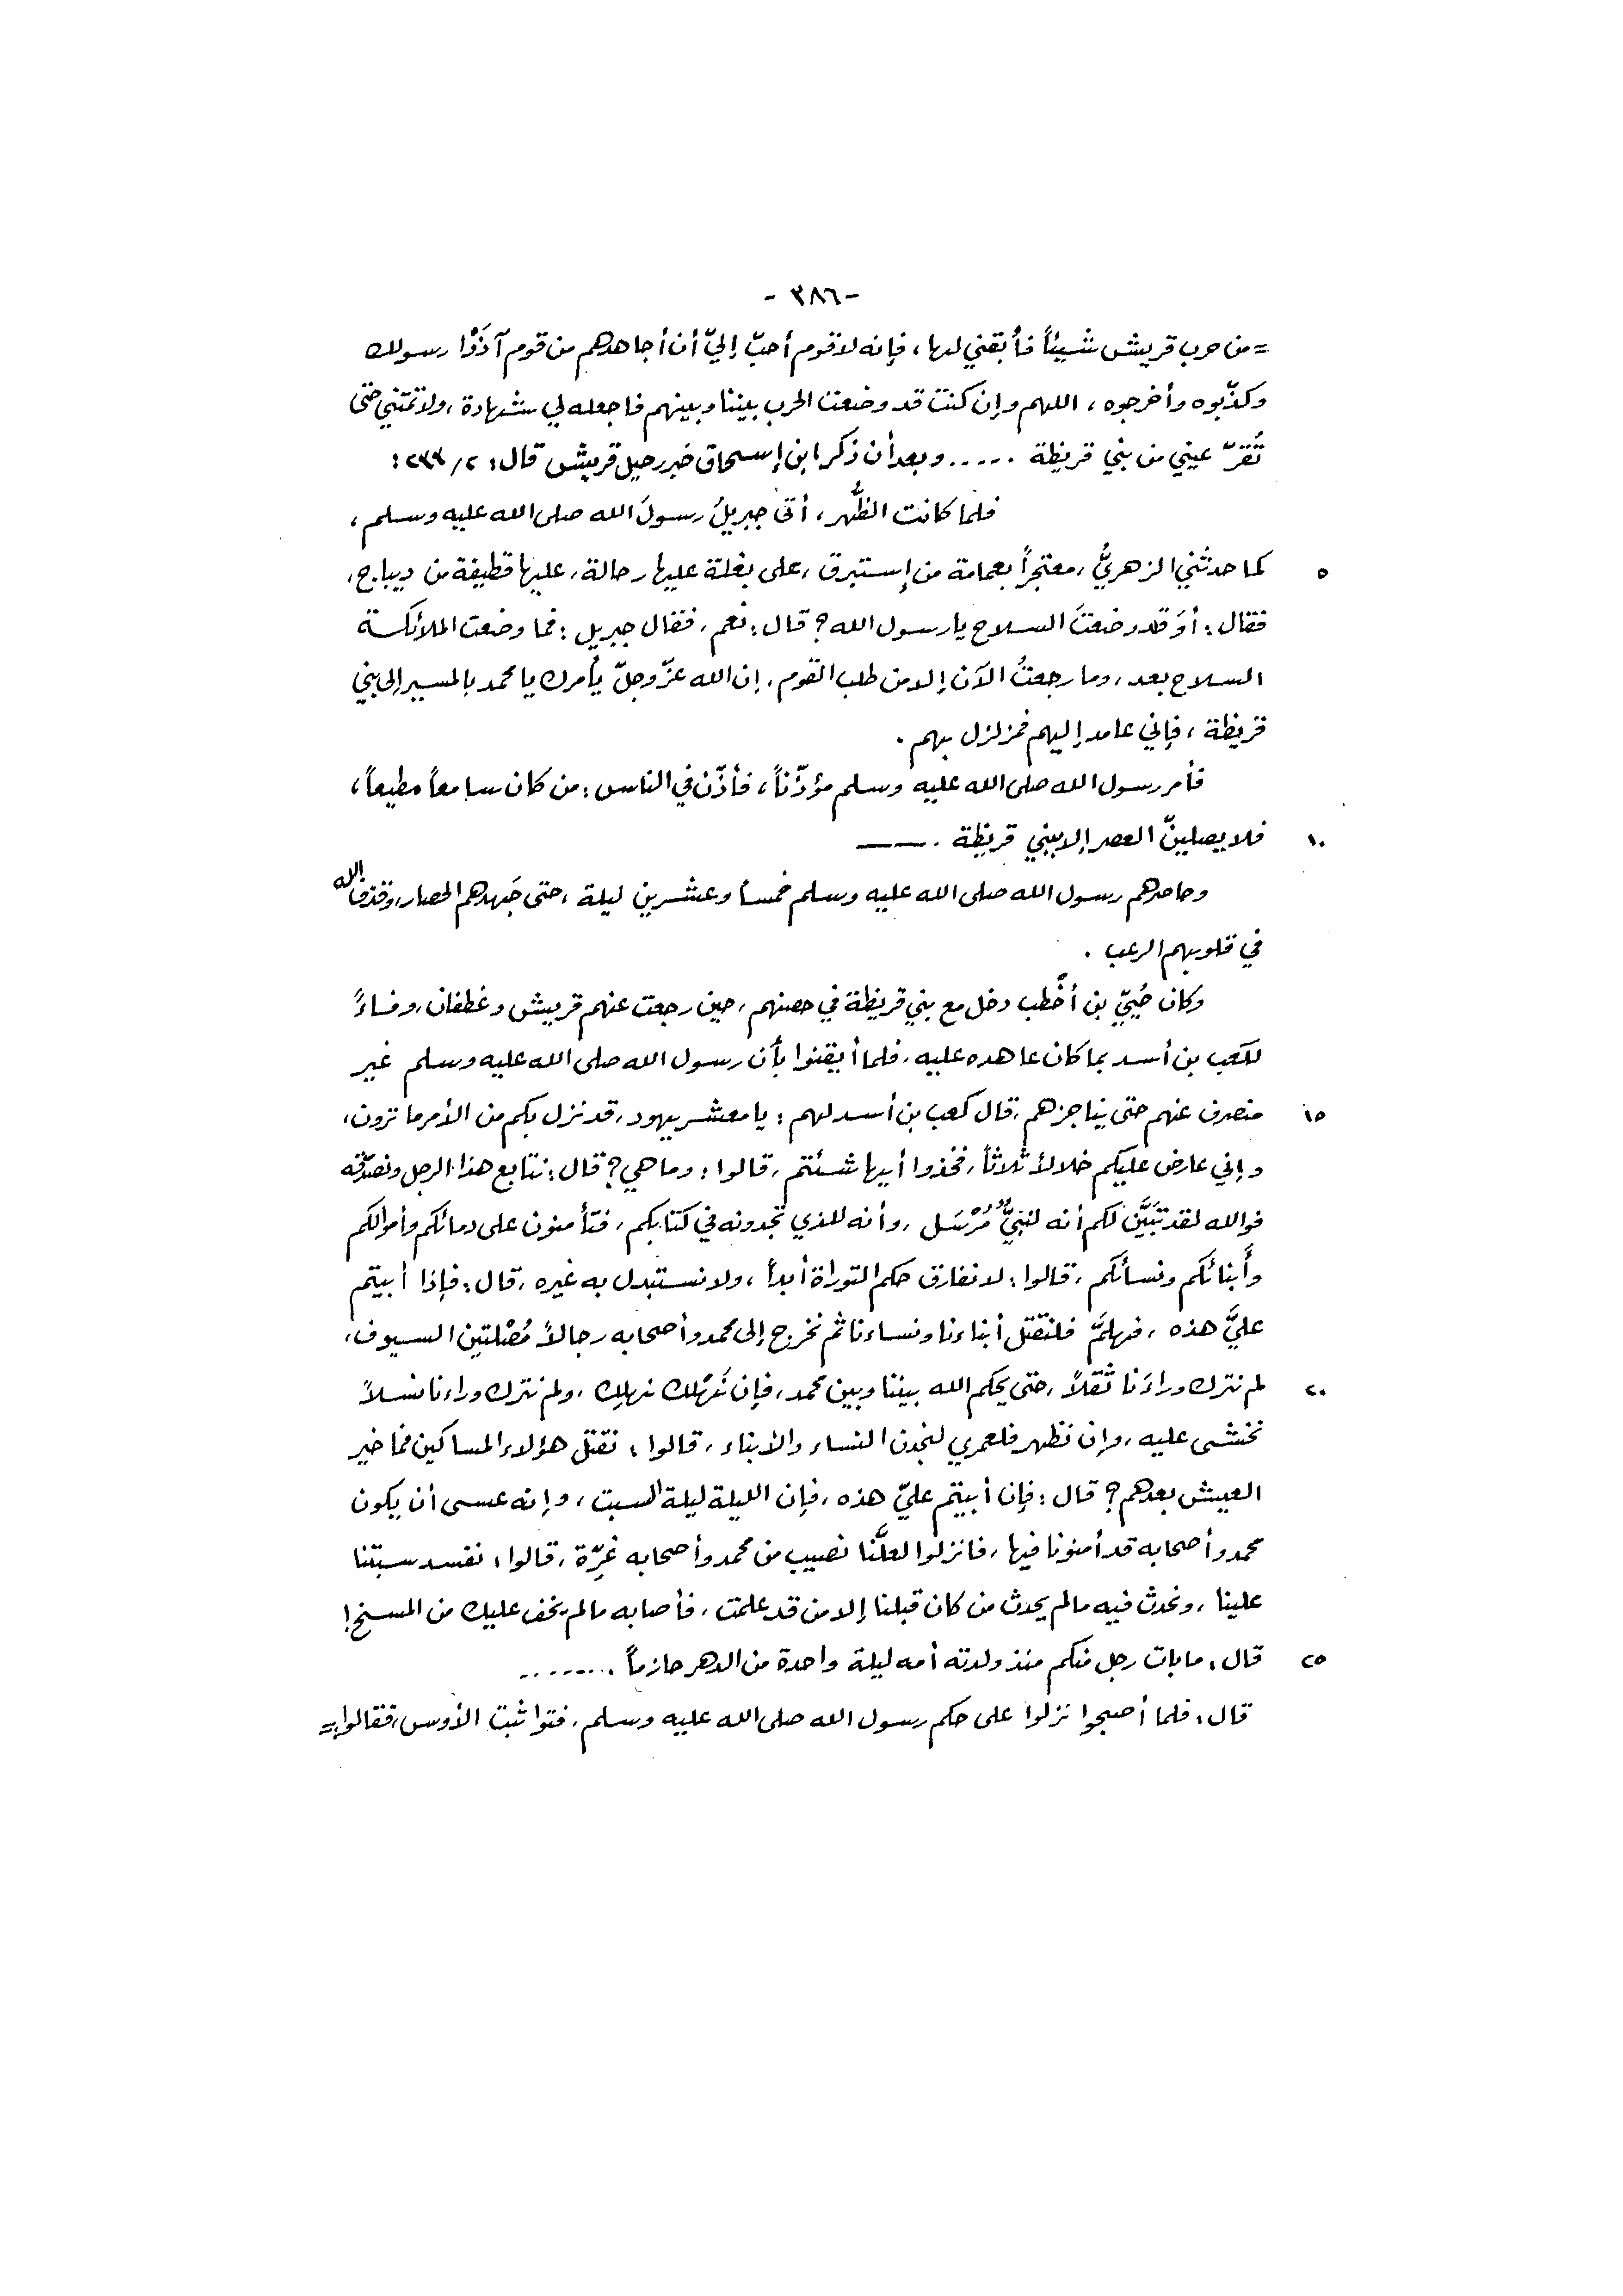 -٣٨٦-
= من حرب قريش شيئاً فأبقني لها، فإنه لا قوم أحبّ إليّ أن أجاهدهم من قوم آذَوْا رسولك
وكذّبوه وأخرجوه، اللهم وإن كنتَ قد وضعت الحرب بيننا وبينهم فاجعله لي شهادة، ولا تمتني حتى
تُقرّ عيني من بني قريظة ..... وبعد أن ذكر ابن إسحاق خبر رحيل قريش قال: ٢/
فلما كانت الظُّهر، أتى جبريلُ رسولَ الله صلى الله عليه وسلم،
٥ كما حدثني الزهريُّ، معتجراً بعمامة من إستبرق، على بغلة عليها رحالة، عليها قطيفة من ديباج،
فقال: أوَقد وضعتَ السلاح يا رسول الله؟ قال: نعم، فقال جبريل: فما وضعت الملائكة
السلاح بعد، وما رجعتُ الآن إلا من طلب القوم، إن الله عزّ وجلّ يأمرك يا محمد بالمسير إلى بني
قريظة، فإني عامد إليهم فمزلزل بهم.
فأمر رسول الله صلى الله عليه وسلم مؤذّناً، فأذّن في الناس: من كان سامعاً مطيعاً،
١٠ فلا يصلينّ العصر إلا ببني قريظة .——
وحاصرهم رسول الله صلى الله عليه وسلم خمساً وعشرين ليلة، حتى جَهدهم الحصار، وقذف الله
في قلوبهم الرعب.
وكان حُييّ بن أخْطب دخل مع بني قريظة في حصنهم، حين رجعت عنهم قريش وغطفان، وفاءً
لكعب بن أسد بما كان عاهده عليه، فلما أيقنوا بأن رسول الله صلى الله عليه وسلم غير
١٥ منصرف عنهم حتى يناجزهم، قال كعب بن أسد لهم: يا معشر يهود، قد نزل بكم من الأمر ما ترون،
وإني عارض عليكم خلالاً ثلاثاً، فخذوا أيها شئتم، قالوا: وما هي؟ قال: نتابع هذا الرجل ونصدّقه
فوالله لقد تَبَيَّن لكم أنه لنبيٌّ مُرْسَل، وأنه للذي تجدونه في كتابكم، فتأمنون على دمائكم وأموالكم
وأَبنائكم ونسائكم، قالوا: لا نفارق حكم التوراة أبداً، ولا نستبدل به غيره، قال: فإذا أبيتم
عليَّ هذه، فهلمَّ فلنقتل أبناءنا ونساءنا ثم نخرج إلى محمد وأصحابه رجالاً مُصْلتين السيوف،
٢٠ لم نترك وراءَنا ثَقَلاً، حتى يحكم الله بيننا وبين محمد، فإن نَهْلك نهلِك، ولم نترك وراءنا نسلاً
نخشى عليه، وإن نظهر فلعمري لنجدن النساء والأبناء، قالوا: نقتل هؤلاء المساكين فما خير
العيش بعدهم؟ قال: فإن أبيتم عليّ هذه، فإن الليلة ليلة السبت، وإنه عسى أن يكون
محمد وأصحابه قد أمنونا فيها، فانزلوا لعلَّنا نصيب من محمد وأصحابه غِرّة، قالوا: نفسد سبتنا
علينا، ونحدث فيه ما لم يحدث من كان قبلنا إلا من قد علمت، فأصابه ما لم يخف عليك من المسخ!
٢٥ قال: ما بات رجل منكم منذ ولدته أمه ليلة واحدة من الدهر حازماً ........
قال: فلما أصبحوا نزلوا على حكم رسول الله صلى الله عليه وسلم، فتواثبت الأوس، فقالوا: =